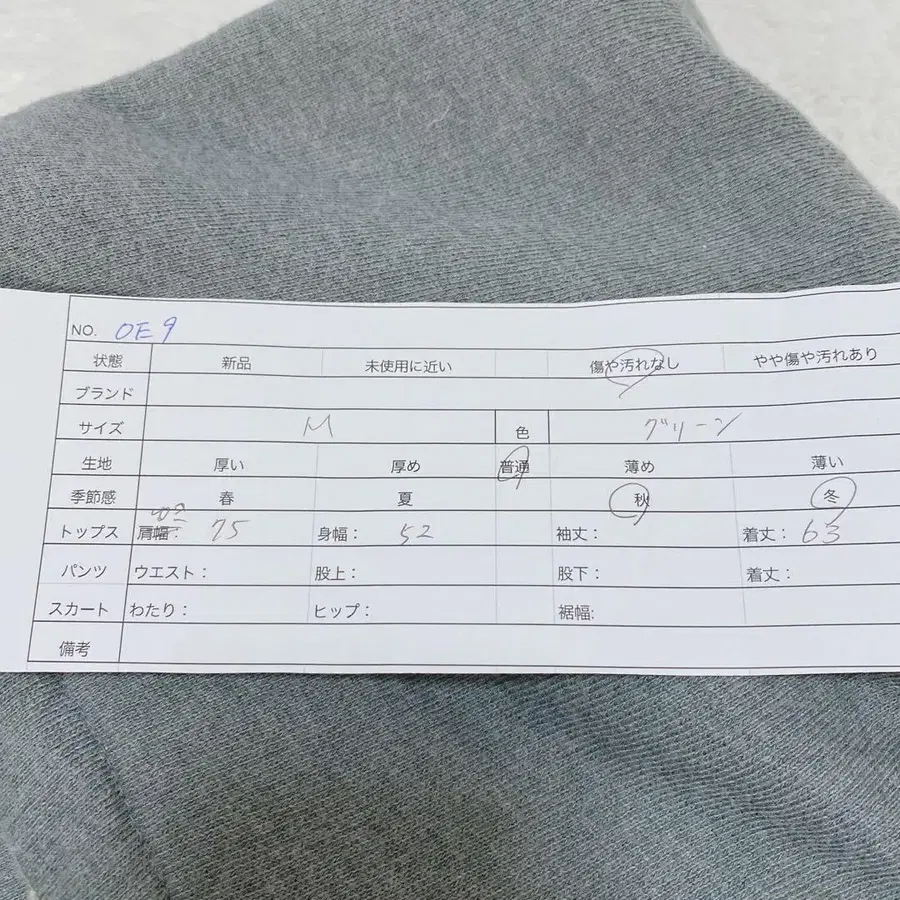 NO. OE9
状態 新品 未使用に近い 傷や汚れなし やや傷や汚れあり
ブランド
サイズ M 色 グリーン
生地 厚い 厚め 普通 薄め 薄い
季節感 春 夏 秋 冬
トップス 肩幅： 75 身幅： 52 袖丈： 着丈： 63
パンツ ウエスト： 股上： 股下： 着丈：
スカート わたり： ヒップ： 裾幅:
備考